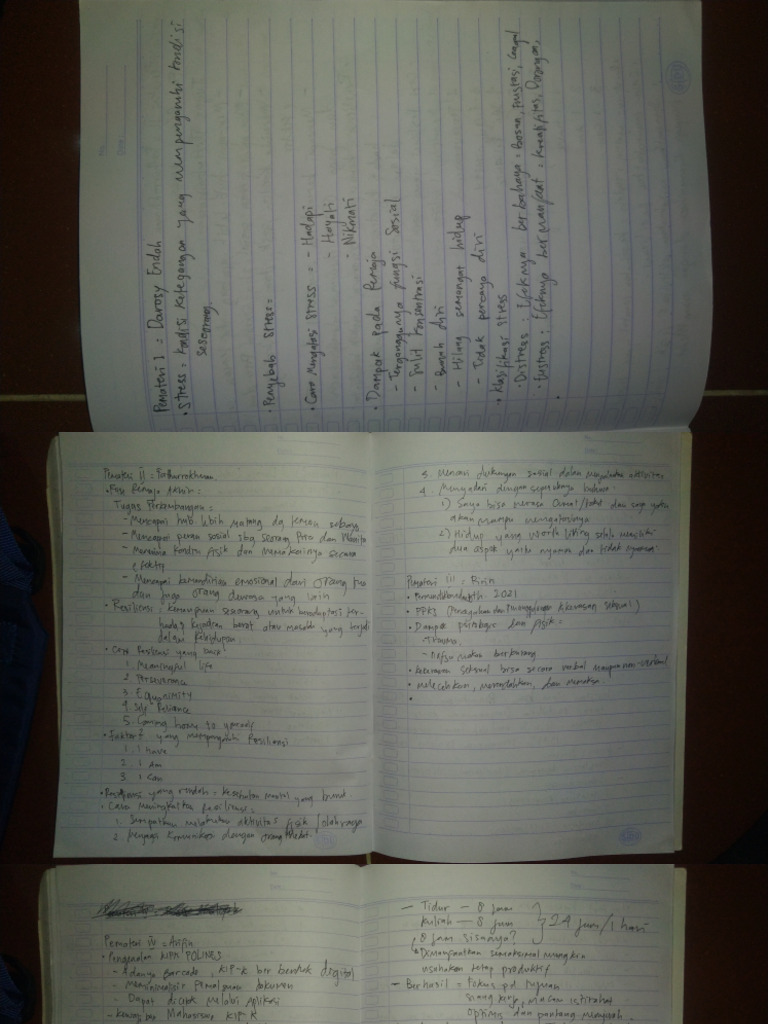 Pemateri I = Darosy Endah
• Stress = Kondisi Ketegangan yang mempengaruhi kondisi
seseorang.
• Penyebab Stress =
• Cara Mengatasi Stress = - Hadapi
- Hayati
- Nikmati
• Dampak pada Remaja
- Terganggunya fungsi Sosial
- Sulit Konsentrasi
- Bunuh diri
- Hilang semangat hidup
- Tidak percaya diri
• Klasifikasi Stress
• Distress : Efeknya berbahaya = Bosan, frustasi, Gagal
• Eustress : Efeknya bermanfaat = kreatifitas, Dorongan.
Pemateri II =
• Fase Remaja Akhir =
Tugas Perkembangan =
- Mencapai hub lebih matang dg teman sebaya
- Mencapai peran sosial sbg seorang Pria dan Wanita
- Menerima Kondisi fisik dan memakainya secara
efektif
- Mencapai kemandirian emosional dari orang tua
dan juga orang dewasa yang lain
• Resiliensi : kemampuan seseorang untuk beradaptasi ter-
hadap kejadian berat atau masalah yang terjadi
dalam kehidupan.
• Core Resiliensi yang
1. Meaningful life
2. Perseverance
3. Equanimity
4. Self Reliance
5. Coming home to
• Faktor yang mempengaruhi Resiliensi
1. I have
2. I am
3. I Can
• Resiliensi yang rendah = kesehatan mental yang buruk.
• Cara Meningkatkan Resiliensi :
1. Sempatkan melakukan aktivitas fisik / olahraga
2. menjaga komunikasi dengan orang terdekat.
3. Mencari dukungan sosial dalam aktivitas
4. Menyadari dengan sepenuhnya bahwa
1) Saya bisa merasa dan saya yakin
akan mampu mengatasinya
2) Hidup yang worth living selalu memiliki
dua aspek yaitu nyaman dan tidak nyaman.
Pemateri III = Ririn
• 2021
• PPKS (Pencegahan dan Penanggulangan Kekerasan Seksual)
• Dampak psikologis dan fisik =
- Trauma,
- Nafsu makan berkurang
• kekerasan seksual bisa secara verbal maupun non-verbal
• melecehkan, merendahkan, dan memaksa.
Pemateri IV = Arifin
• Pengenalan KIPK POLINES
- Adanya Barcode, KIP-K berbentuk digital
- Meminimalisir Pemalsuan dokumen
- Dapat dicek melalui aplikasi
- Kewajiban Mahasiswa KIP-K
- Tidur - 8 Jam
Kuliah - 8 Jam } 24 Jam / 1 hari
8 Jam sisanya?
Dimanfaatkan semaksimal mungkin
usahakan tetap produktif
- Berhasil = Fokus pd Tujuan
siang kerja, malam istirahat
Optimis dan pantang menyerah.